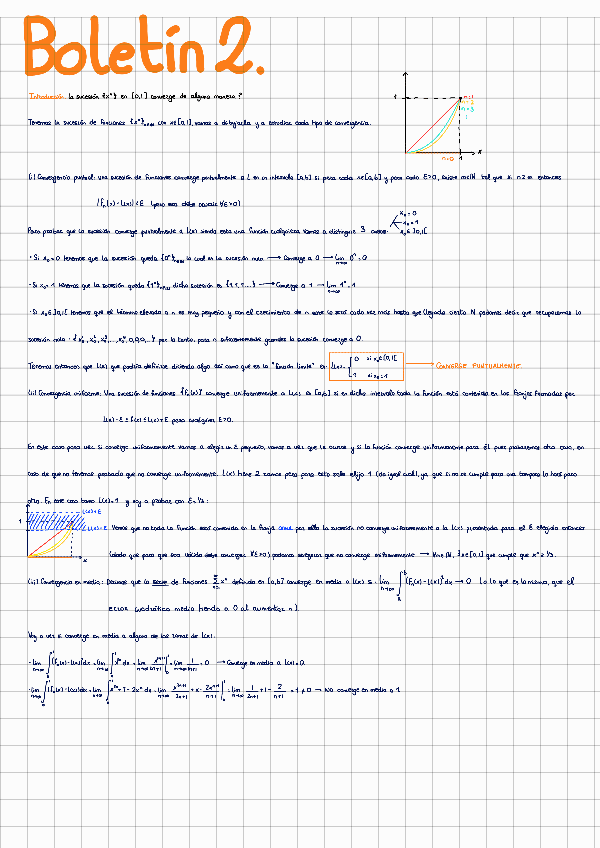 Boletín 2.
Introducción: la sucesión {xⁿ} en [0,1] converge de alguna manera?
Tenemos la sucesión de funciones {xⁿ}n∈ℕ con x∈[0,1], vamos a dibujarla y a estudiar cada tipo de convergencia.
1
n=1
n=2
n=3
n=0 1 x
(i) Convergencia puntual: una sucesión de funciones converge puntualmente a L en un intervalo [a,b] si para cada x∈[a,b] y para cada ε>0, existe m∈ℕ tal que si n≥m entonces
|fₙ(x)-L(x)|<ε (pero esto debe pasar ∀ε>0)
Para probar que la sucesión converge puntualmente a L(x) siendo esta una función cualquiera vamos a distinguir 3 casos:
x₀=0
x₀=1
x₀∈]0,1[
· Si x₀=0 tenemos que la sucesión queda {0ⁿ}n∈ℕ la cual es la sucesión nula → Converge a 0 → lim n→∞ 0ⁿ=0
· Si x₀=1 tenemos que la sucesión queda {1ⁿ}n∈ℕ dicha sucesión es {1,1,1,...} → Converge a 1 → lim n→∞ 1ⁿ=1
· Si x₀∈]0,1[ tenemos que el término elevado a n es muy pequeño y con el crecimiento de n este lo será cada vez más hasta que llegado cierto N podamos decir que recuperamos la
sucesión nula: {x₀¹, x₀², x₀³,..., x₀ⁿ,0,0,0,...} por lo tanto, para n suficientemente grandes la sucesión converge a 0.
Tenemos entonces que L(x) que podría definirse diciendo algo así como que es la "función límite" es L(x)= { 0 si x₀∈[0,1[ → CONVERGE PUNTUALMENTE.
1 si x₀=1
(ii) Convergencia uniforme: Una sucesión de funciones {fₙ(x)} converge uniformemente a L(x) en [a,b] si en dicho intervalo toda la función está contenida en las franjas formadas por
L(x)-ε ≤ f(x) ≤ L(x)+ε para cualquier ε>0.
En este caso para ver si converge uniformemente vamos a elegir un ε pequeño, vamos a ver que le ocurre y si la función converge uniformemente para él, pues probaremos otro caso, en
caso de que no tenemos probado que no converge uniformemente. L(x) tiene 2 ramas pero para esto solo elijo 1 (da igual cual), ya que si no se cumple para una tampoco lo hará para
otra. En este caso tomo L(x)=1 y voy a probar con ε=1/2:
L(x)+ε
1
L(x)-ε
x
Vemos que no toda la función está contenida en la franja azul, por ello la sucesión no converge uniformemente a la L(x) presentada para el ε elegido entonces
(dado que para que sea válido debe converger ∀ε>0) podemos asegurar que no converge uniformemente
(iii) Convergencia en media: Decimos que la serie de funciones xⁿ definida en [a,b] converge en media a L(x) si: lim n→∞ ∫ₐᵇ (fₙ(x)-L(x))² dx → 0 (o lo que es lo mismo, que el
error cuadrático medio tienda a 0 al aumentar n).
Voy a ver si converge en media a alguna de las ramas de L(x):
· lim n→∞ ∫₀¹ (fₙ(x)-L(x))² dx = lim n→∞ = 0 → Converge en media a L(x)=0.
· lim n→∞ ∫₀¹ (fₙ(x)-L(x))² dx = lim n→∞ ∫₀¹ x²ⁿ+1-2xⁿ dx = lim n→∞ x²ⁿ⁺¹/2n+1 + x - 2xⁿ⁺¹/n+1 |₀¹ = lim n→∞ 1/2n+1 + 1 - 2/n+1 = 1≠0 → NO converge en media a 1.